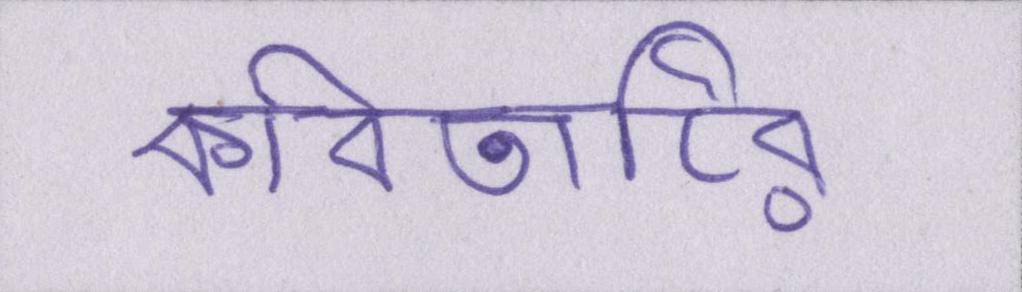 কবিতাটির